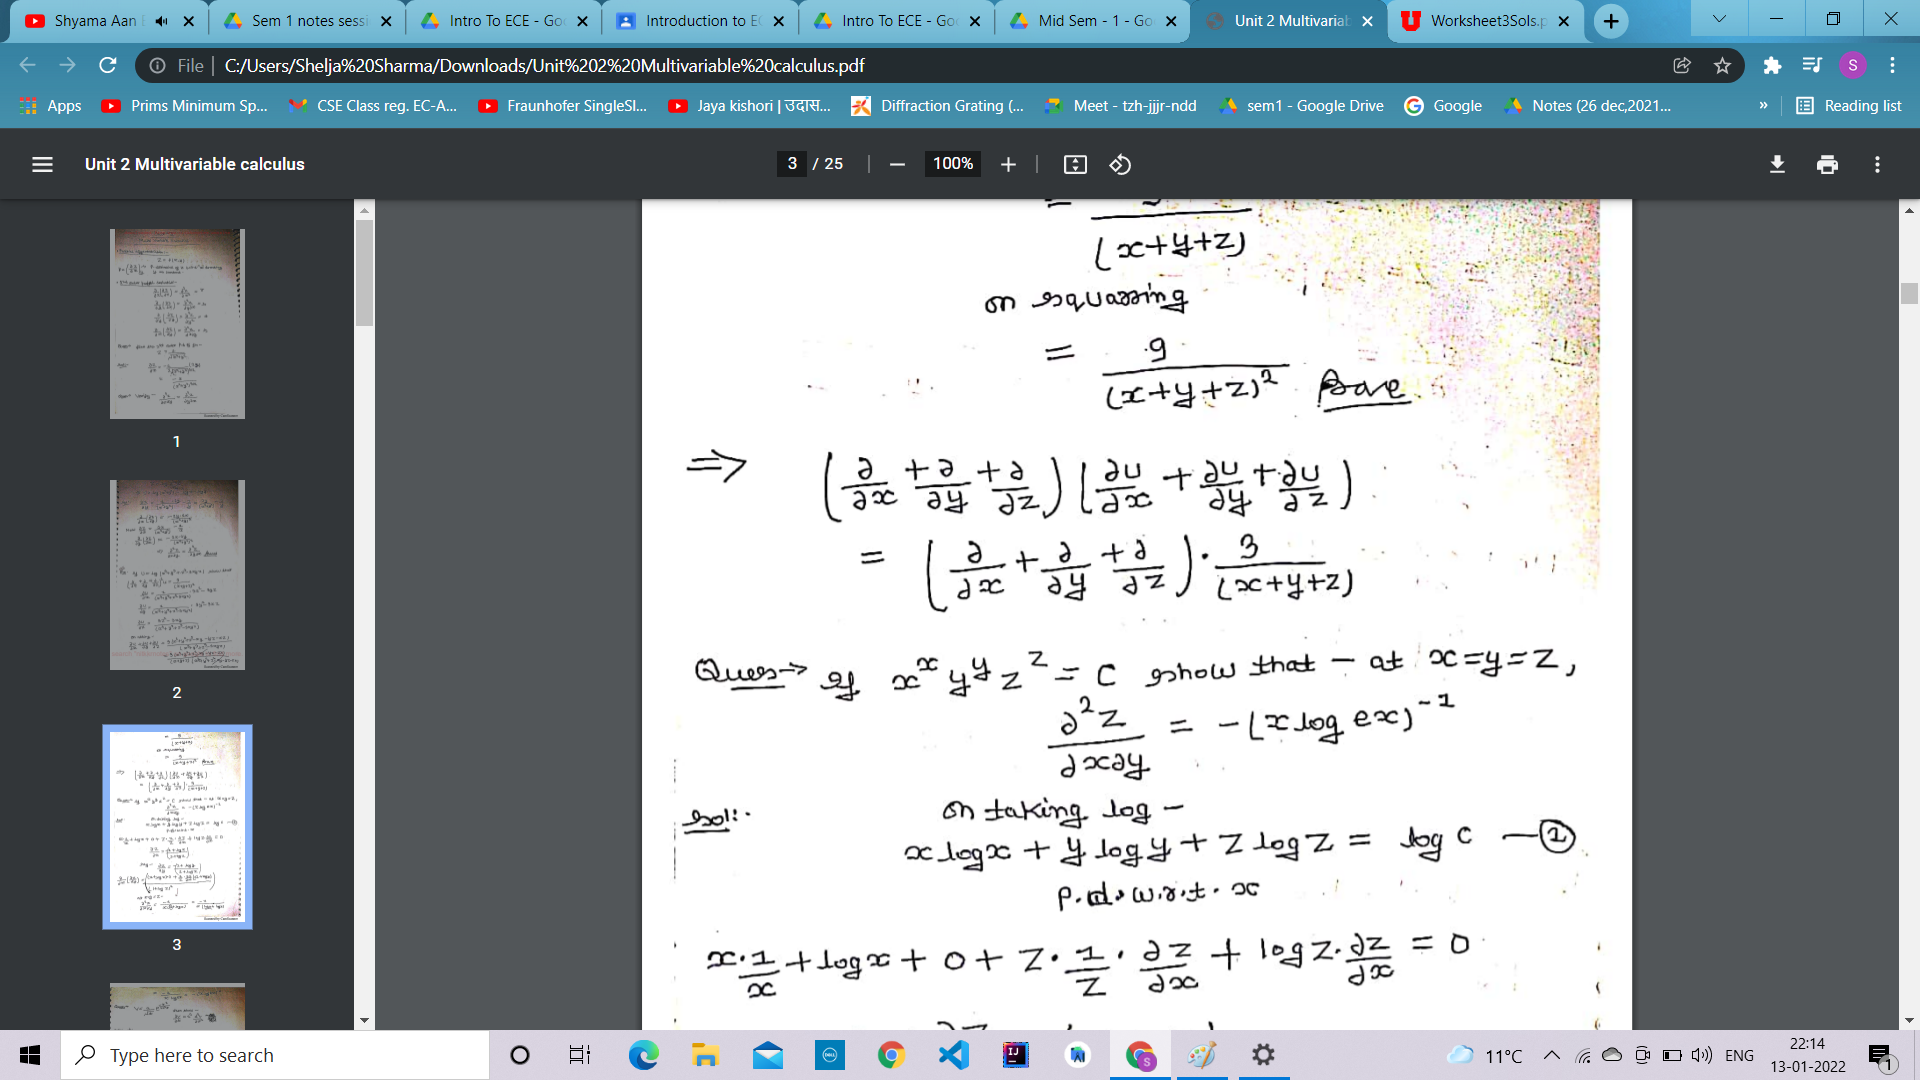 Shyama Aan
Sem 1 notes sessi
Intro To ECE - Goo
Introduction to EC
Intro To ECE - Goo
Mid Sem - 1 - Go
Unit 2 Multivariab
Worksheet3Sols.p
File | C:/Users/Shelja%20Sharma/Downloads/Unit%202%20Multivariable%20calculus.pdf
S
Apps
Prims Minimum Sp...
CSE Class reg. EC-A...
Fraunhofer SingleSl...
Jaya kishori | उदास...
Diffraction Grating (...
Meet - tzh-jjjr-ndd
sem1 - Google Drive
Google
Notes (26 dec,2021...
»
Reading list
Unit 2 Multivariable calculus
3 / 25
100%
1
2
3
= (x+y+z)
on squarring
= 9/(x+y+z)² Prove
⇒ (∂/∂x + ∂/∂y + ∂/∂z) (∂u/∂x + ∂u/∂y + ∂u/∂z)
= (∂/∂x + ∂/∂y + ∂/∂z) · 3/(x+y+z)
Ques→ If xˣ yʸ zᶻ = c show that – at x=y=z,
∂²z/∂x∂y = -(x log ex)⁻¹
Sol:-
on taking log –
x logx + y logy + z logz = log c —①
p.d.w.r.t. x
x·1/x + logx + 0 + z·1/z·∂z/∂x + logz·∂z/∂x = 0
Type here to search
11°C
ENG
22:14
13-01-2022
1